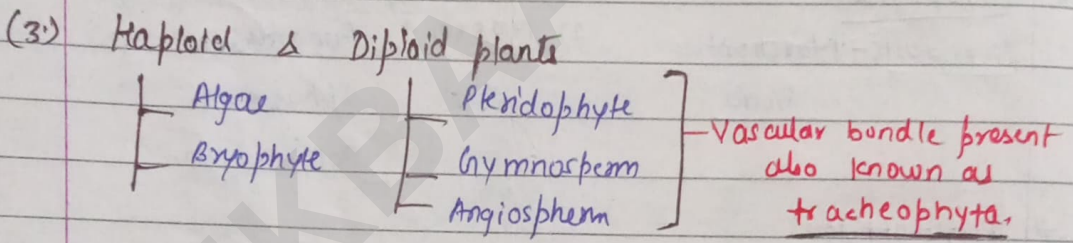 (3.) Haploid & Diploid plants
Algae Pteridophyte
Bryophyte Gymnosperm
Angiospherm
Vascular bundle present
also known as
tracheophyta.